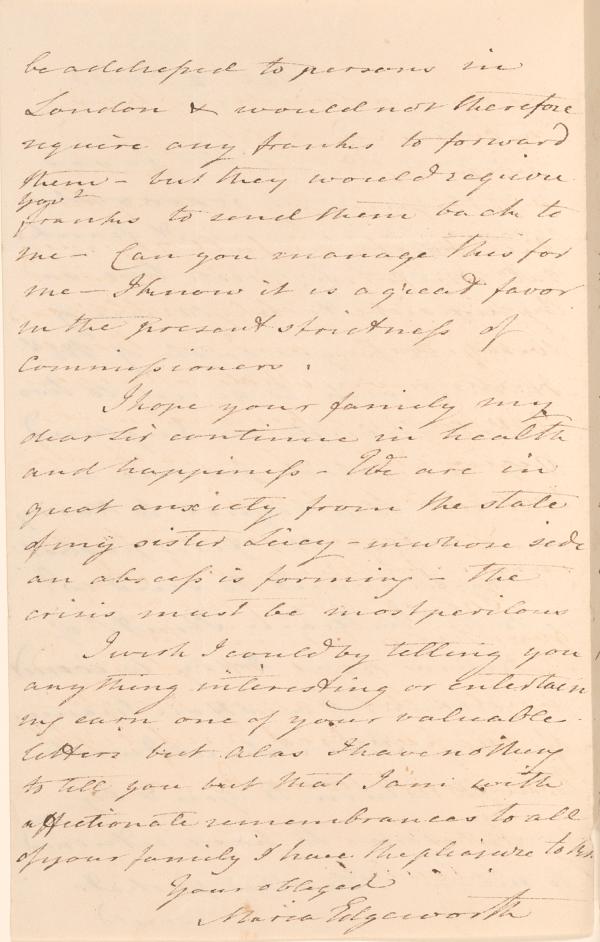 be addressed to persons in
London & would not therefore
require any franks to forward
them – but they would require
yo<sup>r</sup>
franks to send them back to
me – Can you manage this for
me – I know it is a great favor
in the present strictness of
Commissioners.
I hope your family my
dear Sir continue in health
and happiness – We are in
great anxiety from the state
of my sister Lucy – in whose side
an abscess is forming – The
crisis must be most perilous
I wish I could by telling you
anything interesting or entertain
ing earn one of your valuable
letters but alas I have nothing
to tell you but that I am with
affectionate remembrances to all
of your family I have the pleasure to be
Your obliged
Maria Edgeworth